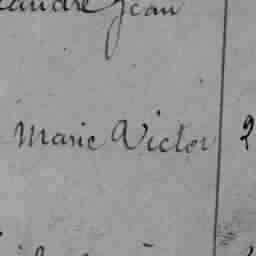 Jean
Marie Victor 2